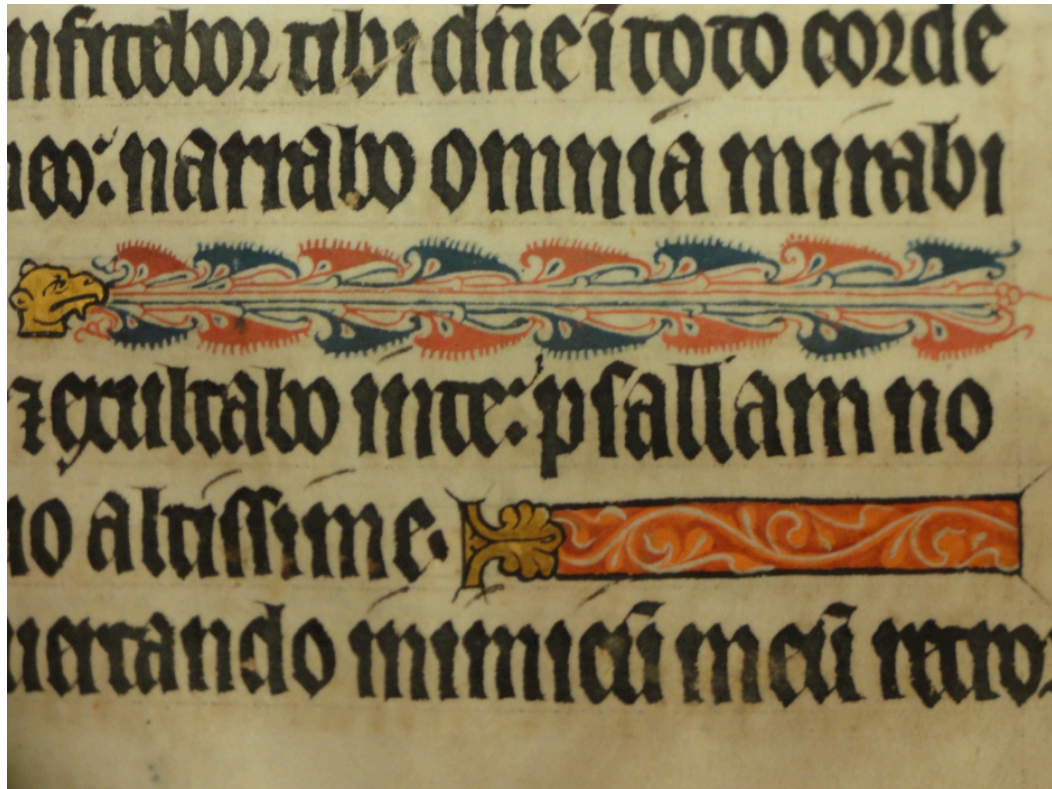 nfitebor tibi dn̄e ī toto corde
meo: narrabo omnia mirabi
⁊ exultabo in te: psallam no
no altissime.
uertendo inimicū meū retro